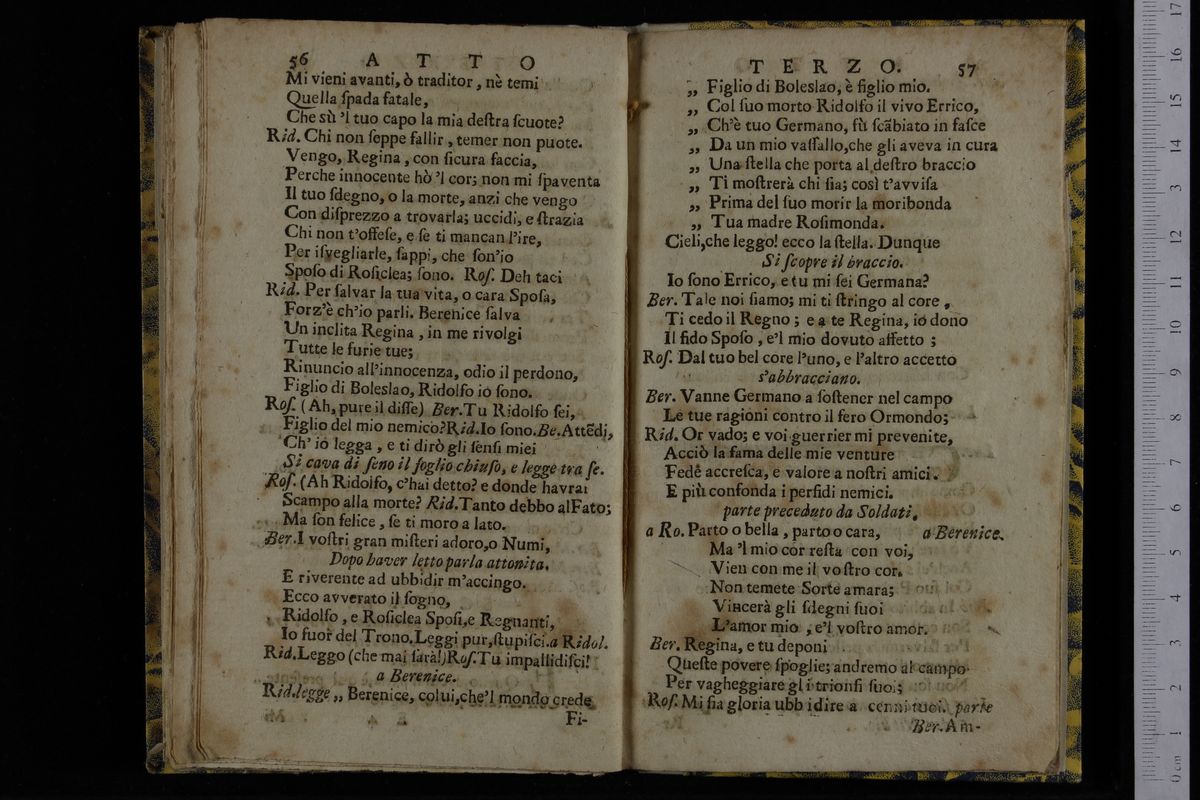 56 A T T O
Mi vieni avanti, ò traditor, nè temi
Quella ſpada fatale,
Che sù 'l tuo capo la mia deſtra ſcuote?
Rid. Chi non ſeppe fallir, temer non puote.
Vengo, Regina, con ſicura faccia,
Perche innocente hò 'l cor; non mi ſpaventa
Il tuo ſdegno, o la morte, anzi che vengo
Con diſprezzo a trovarla; uccidi, e ſtrazia
Chi non t'offeſe, e ſe ti mancan l'ire,
Per iſvegliarle, ſappi, che ſon'io
Spoſo di Roſiclea; ſono. Roſ. Deh taci
Rid. Per ſalvar la tua vita, o cara Spoſa,
Forz'è ch'io parli. Berenice ſalva
Un inclita Regina, in me rivolgi
Tutte le furie tue;
Rinuncio all'innocenza, odio il perdono,
Figlio di Boleslao, Ridolfo io ſono.
Roſ. (Ah, pure il diſſe) Ber. Tu Ridolfo ſei,
Figlio del mio nemico? Rid. Io ſono. Be. Attẽdi,
Ch' io legga, e ti dirò gli ſenſi miei
Si cava di ſeno il foglio chiuſo, e legge tra ſe.
Roſ. (Ah Ridolfo, c'hai detto? e donde havrai
Scampo alla morte? Rid. Tanto debbo al Fato;
Ma ſon felice, ſe ti moro a lato.
Ber. I voſtri gran miſteri adoro, o Numi,
Dopo haver letto parla attonita.
E riverente ad ubbidir m'accingo.
Ecco avverato il ſogno,
Ridolfo, e Roſiclea Spoſi, e Regnanti,
Io fuor del Trono. Leggi pur, ſtupiſci. a Ridol.
Rid. Leggo (che mai ſarà!) Roſ. Tu impallidiſci!
a Berenice.
Rid. legge „ Berenice, colui, che'l mondo crede
Fi-
T E R Z O. 57
„ Figlio di Boleslao, è figlio mio.
„ Col ſuo morto Ridolfo il vivo Errico,
„ Ch'è tuo Germano, fù ſcãbiato in faſce
„ Da un mio vaſſallo, che gli aveva in cura
„ Una ſtella che porta al deſtro braccio
„ Ti moſtrerà chi ſia; così t'avviſa
„ Prima del ſuo morir la moribonda
„ Tua madre Roſimonda.
Cieli, che leggo! ecco la ſtella. Dunque
Si ſcopre il braccio.
Io ſono Errico, e tu mi ſei Germana?
Ber. Tale noi ſiamo; mi ti ſtringo al core,
Ti cedo il Regno; e a te Regina, io dono
Il fido Spoſo, e'l mio dovuto affetto;
Roſ. Dal tuo bel core l'uno, e l'altro accetto
s'abbracciano.
Ber. Vanne Germano a ſoſtener nel campo
Le tue ragioni contro il fero Ormondo;
Rid. Or vado; e voi guerrier mi prevenite,
Acciò la fama delle mie venture
Fede accreſca, e valore a noſtri amici.
E più confonda i perfidi nemici.
parte preceduto da Soldati.
a Ro. Parto o bella, parto o cara, a Berenice.
Ma 'l mio cor reſta con voi,
Vien con me il voſtro cor.
Non temete Sorte amara;
Vincerà gli ſdegni ſuoi
L'amor mio, e'l voſtro amor.
Ber. Regina, e tu deponi
Queſte povere ſpoglie; andremo al campo
Per vagheggiare gli trionfi ſuoi;
Roſ. Mi ſia gloria ubbidire a cenni tuoi. parte
Ber. Am-